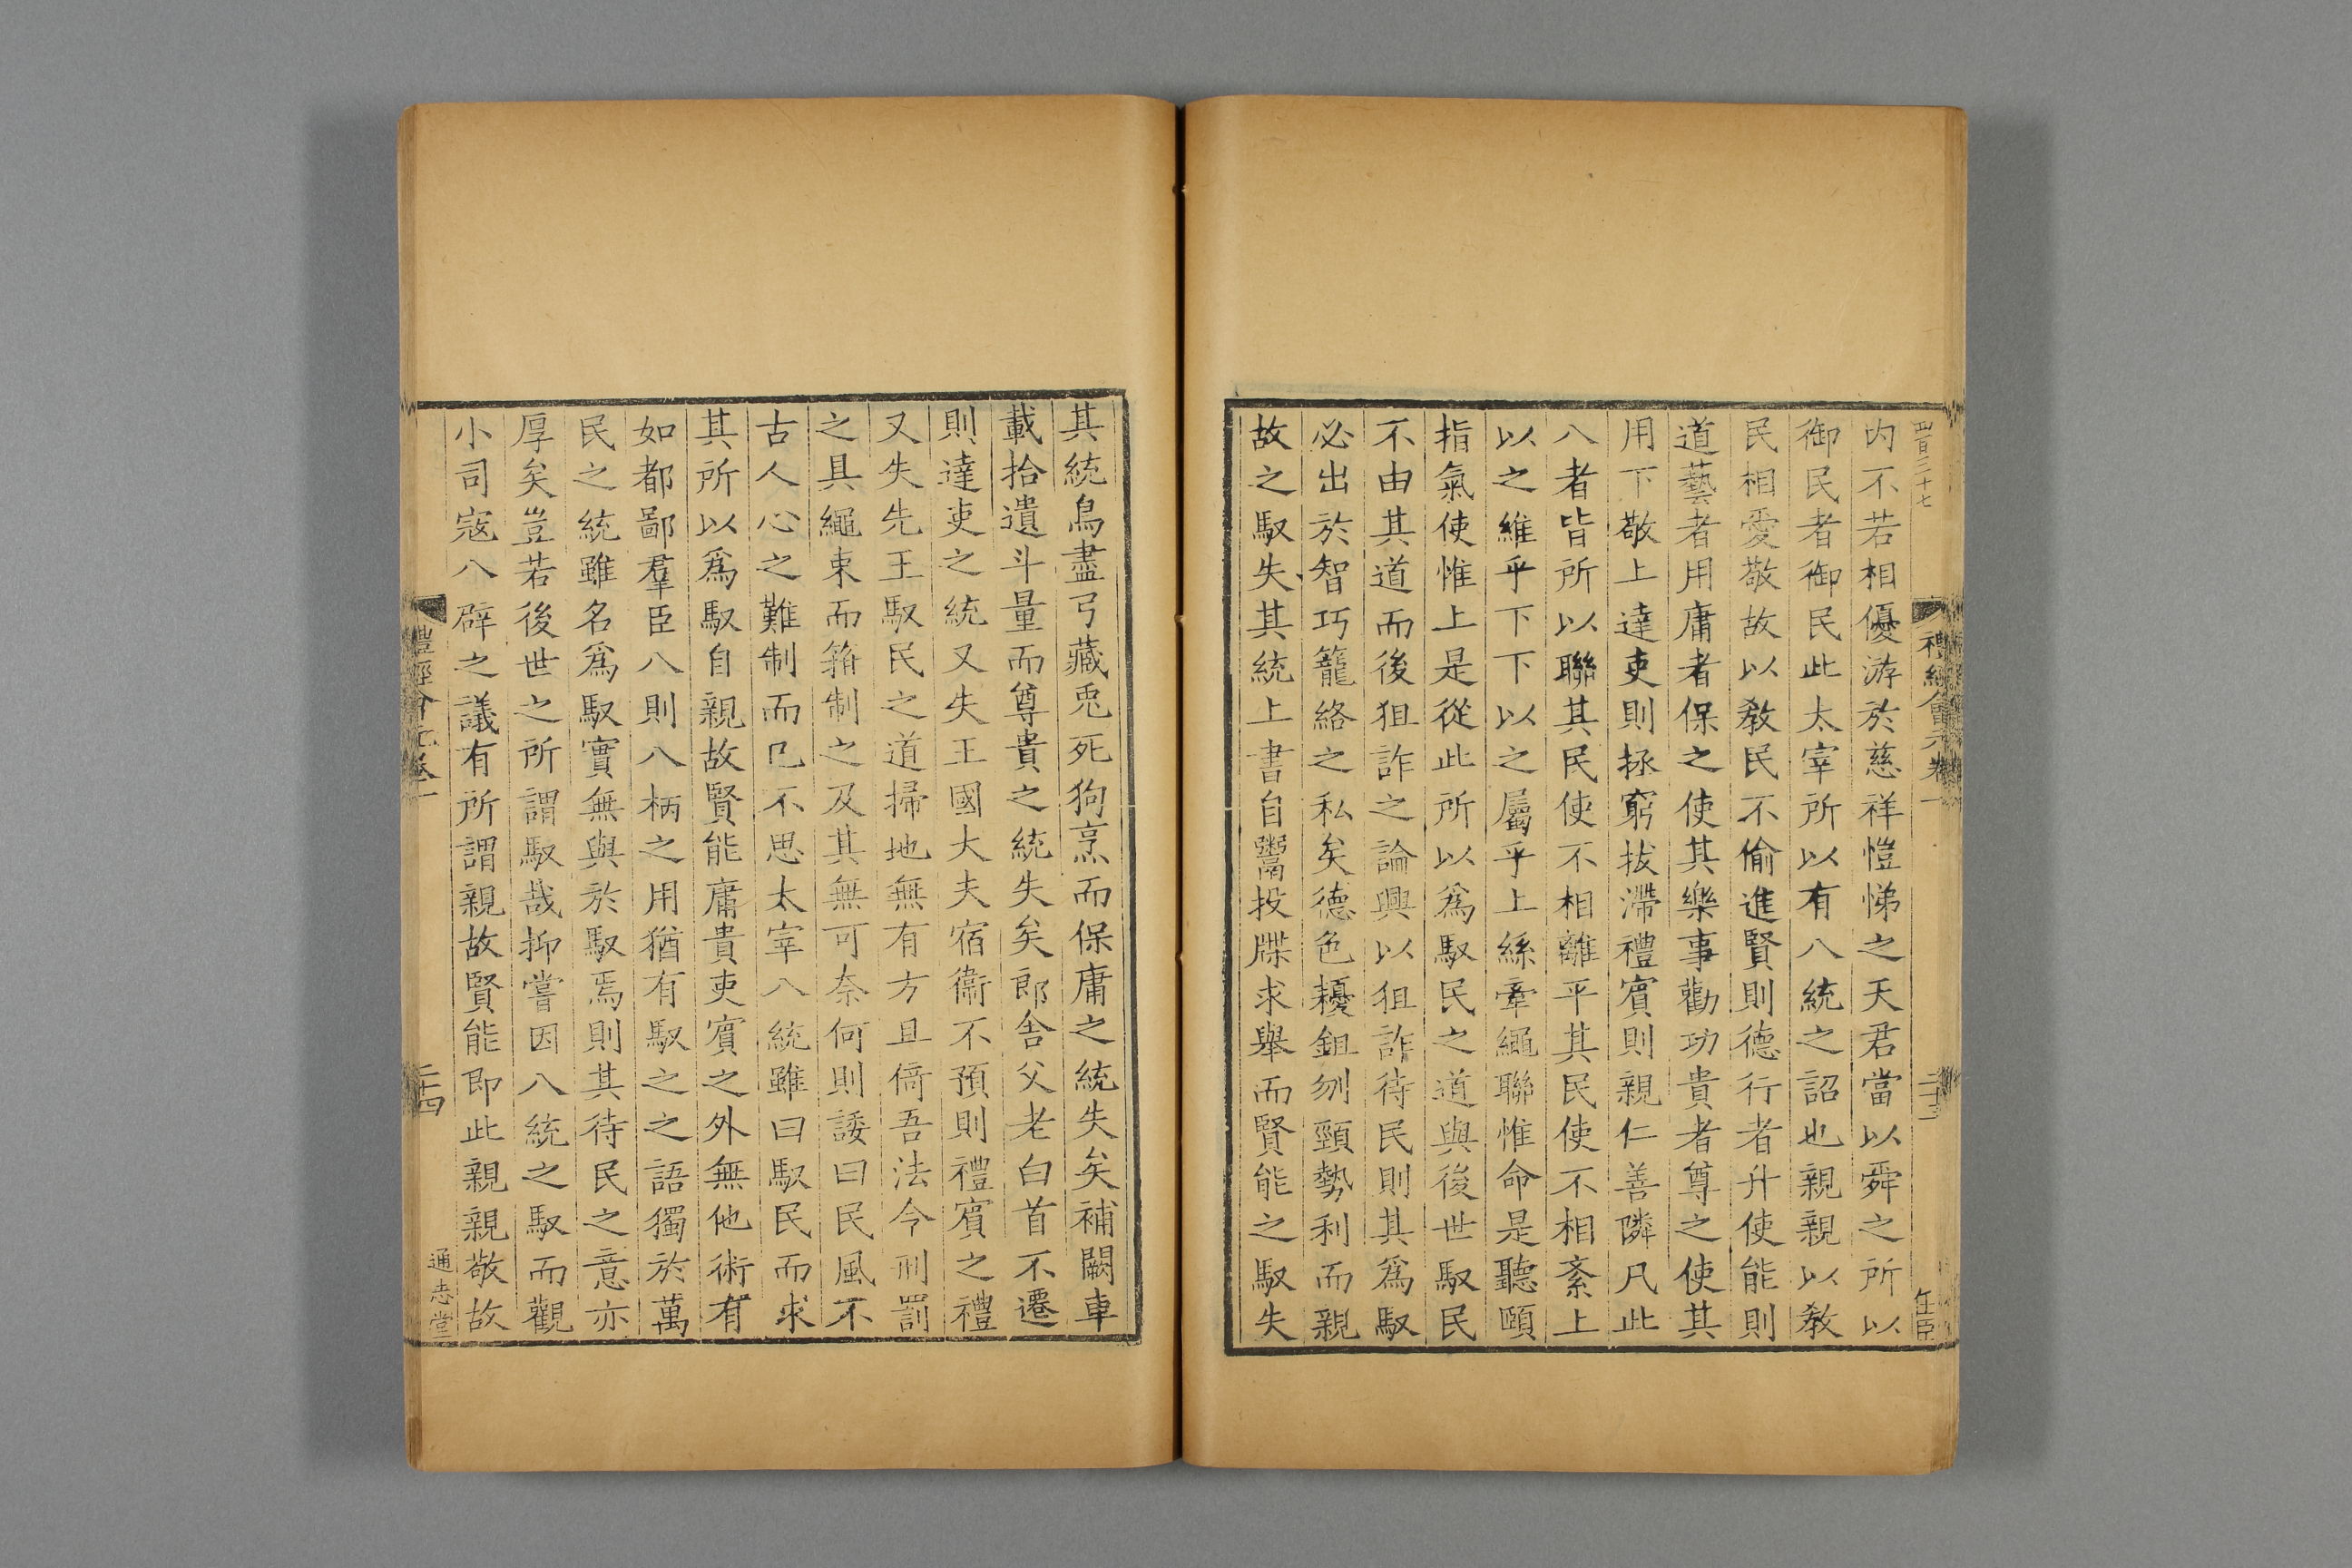 四百三十七
禮經會元卷一
二十三
内不若相優游於慈祥愷悌之天君當以舜之所以
御民者御民此太宰所以有八統之詔也親親以敎
民相愛敬故以敎民不偷進賢則德行者升使能則
道藝者用庸者保之使其樂事勸功貴者尊之使其
用下敬上達吏則拯窮拔滯禮賔則親仁善隣凡此
八者皆所以聯其民使不相離平其民使不相紊上
以之維乎下下以之屬乎上絲牽繩聯惟命是聽頤
指氣使惟上是從此所以爲馭民之道與後世馭民
不由其道而後狙詐之論興以狙詐待民則其爲馭
必出於智巧籠絡之私矣德色耰鉏刎頸勢利而親
故之馭失其統上書自鬻投牒求舉而賢能之馭失
其統鳥盡弓藏兎死狗烹而保庸之統失矣補闕車
載拾遺斗量而尊貴之統失矣郎舎父老白首不遷
則達吏之統又失王國大夫宿衞不預則禮賔之禮
又失先王馭民之道掃地無有方且倚吾法令刑罰
之具繩束而箝制之及其無可奈何則諉曰民風不
古人心之難制而已不思太宰八統雖曰馭民而求
其所以爲馭自親故賢能庸貴吏賔之外無他術有
如都鄙羣臣八則八柄之用猶有馭之之語獨於萬
民之統雖名爲馭實無與於馭焉則其待民之意亦
厚矣豈若後世之所謂馭哉抑嘗因八統之馭而觀
小司寇八辟之議有所謂親故賢能即此親親敬故
禮經會元卷一
二十四
通志堂